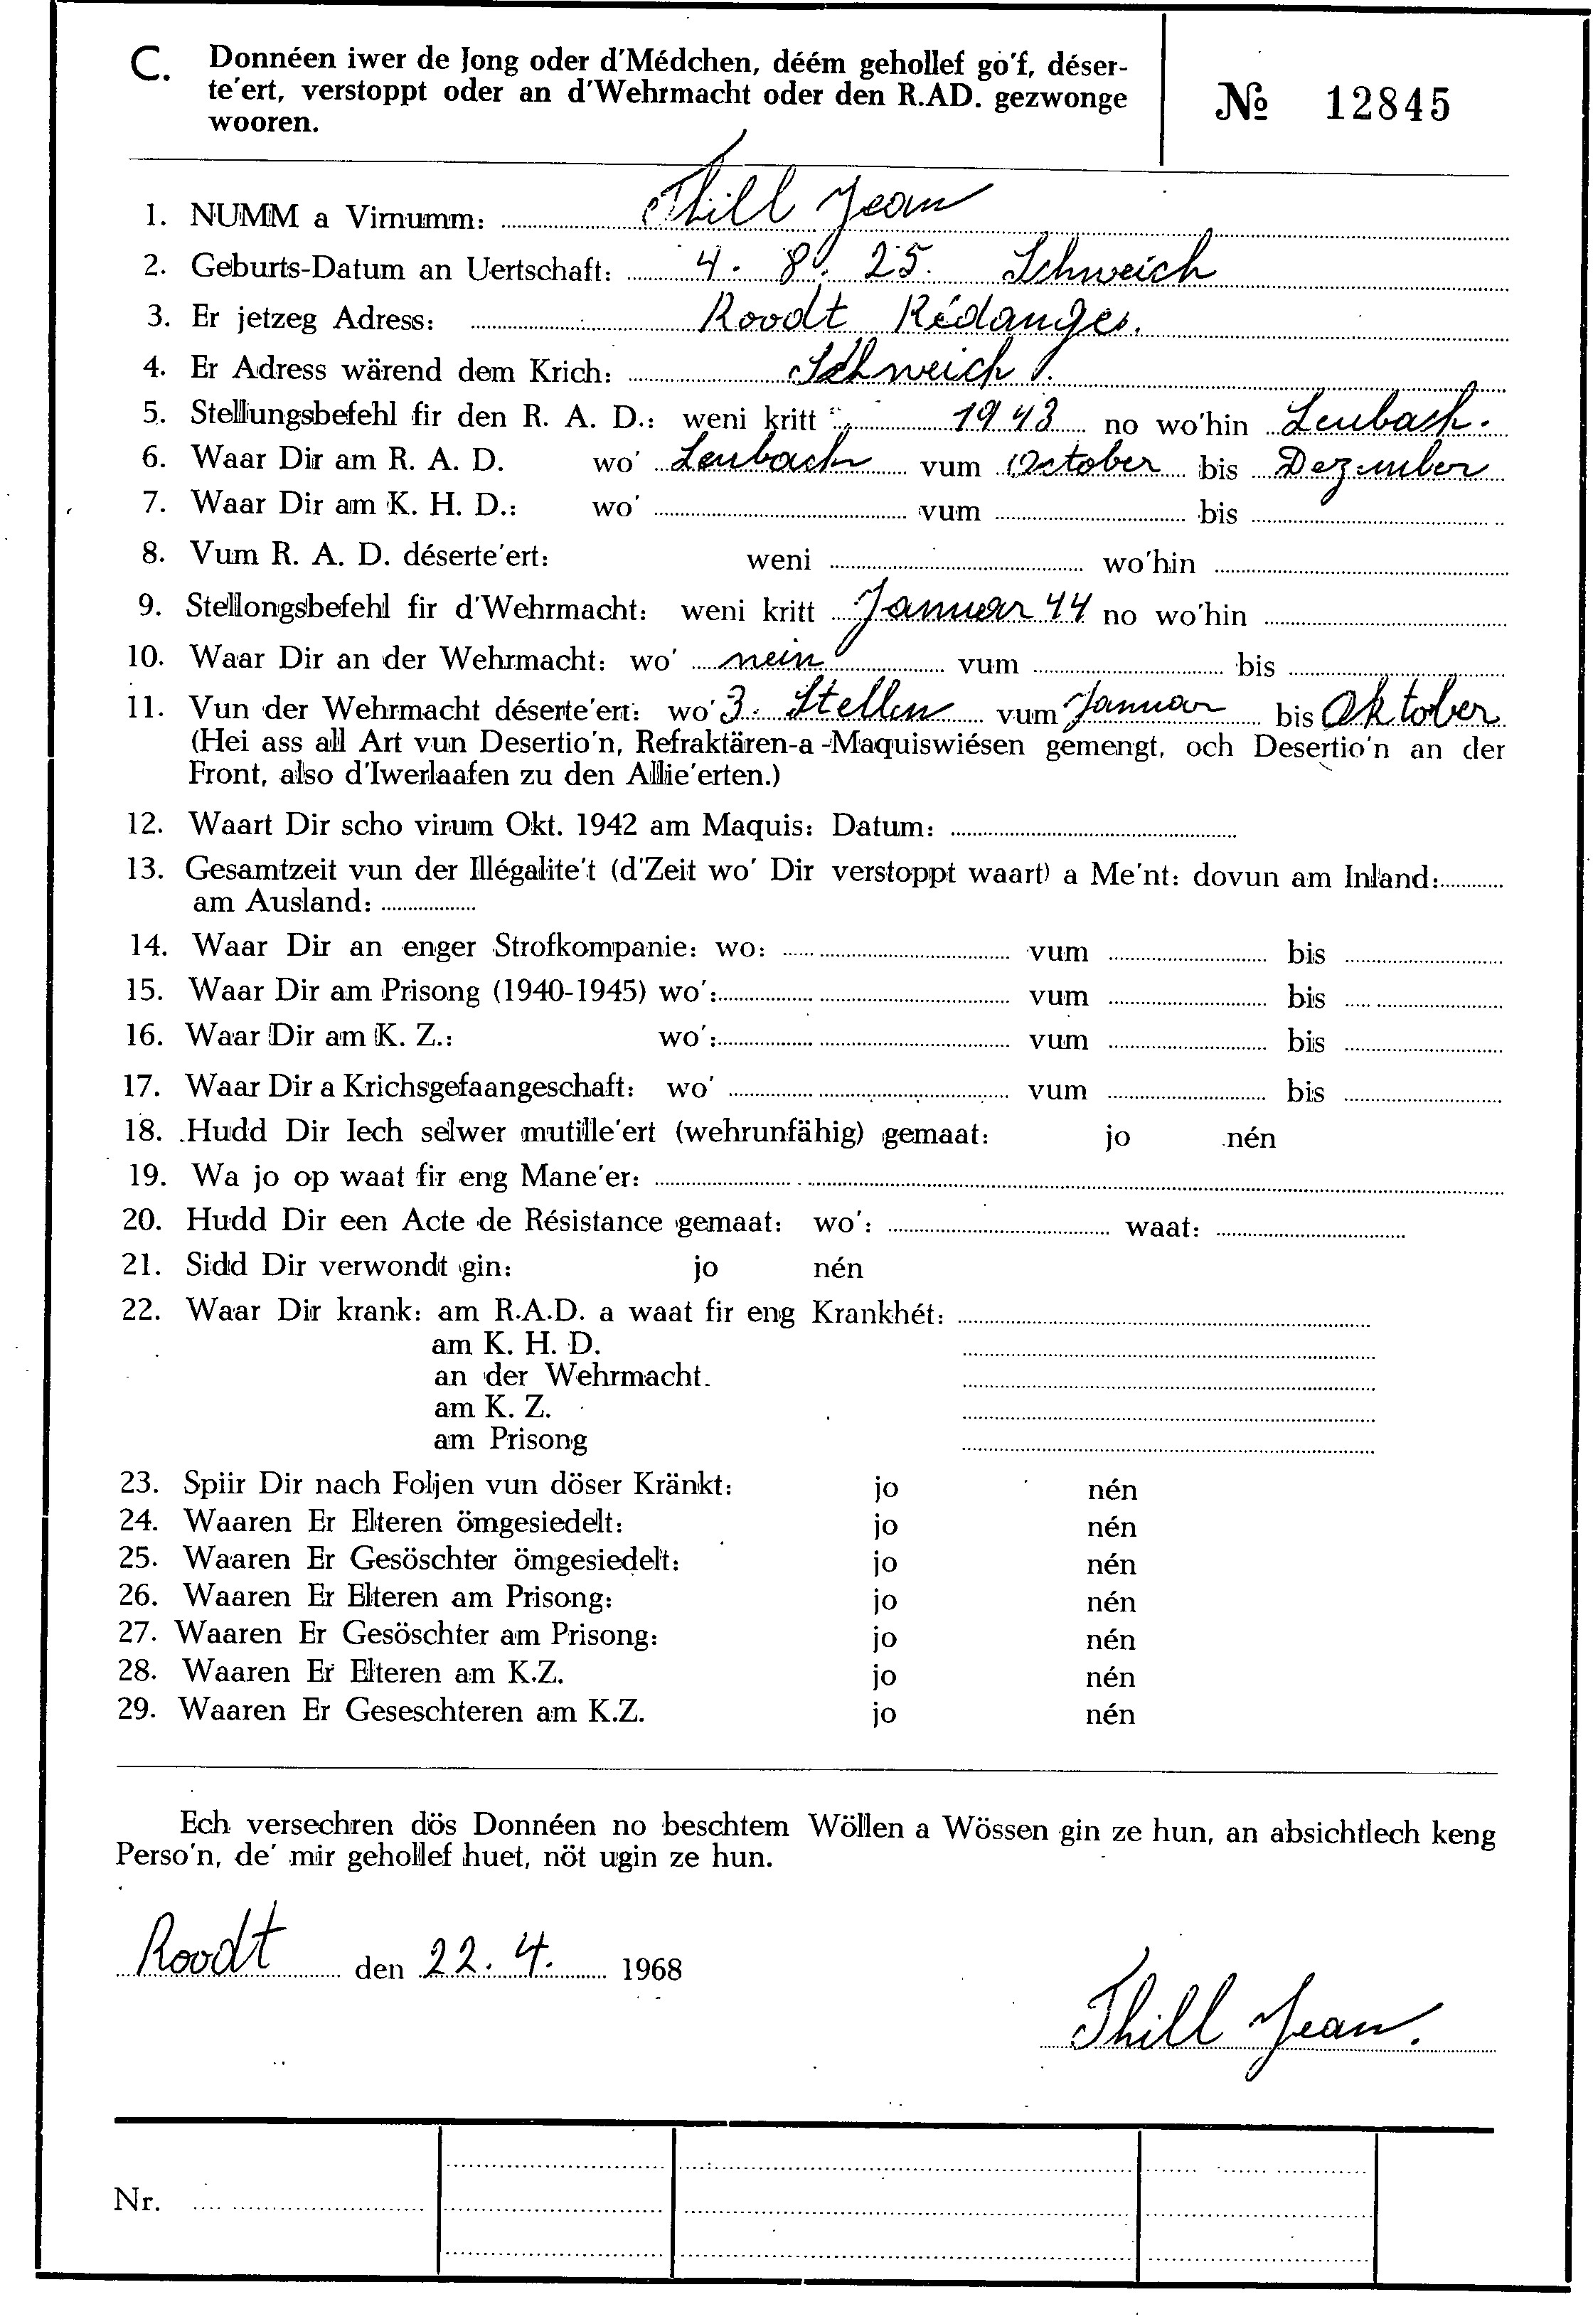 C. Donnéen iwer de Jong oder d'Médchen, déém gehollef go'f, déser-
te'ert, verstoppt oder an d'Wehrmacht oder den R.AD. gezwonge
wooren.
№ 12845
1. NUMM a Virnumm: Thill Jean
2. Geburts-Datum an Uertschaft: 4. 8. 25. Schweich
3. Er jetzeg Adress: Roodt Rédanges.
4. Er Adress wärend dem Krich: Schweich.
5. Stellungsbefehl fir den R. A. D.: weni kritt 1943 no wo'hin Leubach.
6. Waar Dir am R. A. D. wo' Leubach vum October bis Dezember
7. Waar Dir am K. H. D.: wo' vum bis
8. Vum R. A. D. déserte'ert: weni wo'hin
9. Stellongsbefehl fir d'Wehrmacht: weni kritt Januar 44 no wo'hin
10. Waar Dir an der Wehrmacht: wo' nein vum bis
11. Vun der Wehrmacht déserte'ert: wo' 3. Stellen vum Januar bis Oktober
(Hei ass all Art vun Desertio'n, Refraktären-a-Maquiswiésen gemengt, och Desertio'n an der
Front, also d'Iwerlaafen zu den Allie'erten.)
12. Waart Dir scho virum Okt. 1942 am Maquis: Datum:
13. Gesamtzeit vun der Illégalite't (d'Zeit wo' Dir verstoppt waart) a Me'nt: dovun am Inland:
am Ausland:
14. Waar Dir an enger Strofkompanie: wo: vum bis
15. Waar Dir am Prisong (1940-1945) wo': vum bis
16. Waar Dir am K. Z.: wo': vum bis
17. Waar Dir a Krichsgefaangeschaft: wo' vum bis
18. Hudd Dir Iech selwer mutille'ert (wehrunfähig) gemaat: jo nén
19. Wa jo op waat fir eng Mane'er:
20. Hudd Dir een Acte de Résistance gemaat: wo': waat:
21. Sidd Dir verwondt gin: jo nén
22. Waar Dir krank: am R.A.D. a waat fir eng Krankhét:
am K. H. D.
an der Wehrmacht.
am K. Z.
am Prisong
23. Spiir Dir nach Foljen vun döser Kränkt: jo nén
24. Waaren Er Elteren ömgesiedelt: jo nén
25. Waaren Er Gesöschter ömgesiedelt: jo nén
26. Waaren Er Elteren am Prisong: jo nén
27. Waaren Er Gesöschter am Prisong: jo nén
28. Waaren Er Elteren am K.Z. jo nén
29. Waaren Er Geseschteren am K.Z. jo nén
Ech versechren dös Donnéen no beschtem Wöllen a Wössen gin ze hun, an absichtlech keng
Perso'n, de' mir gehollef huet, nöt ugin ze hun.
Roodt den 22. 4. 1968
Thill Jean.
Nr.